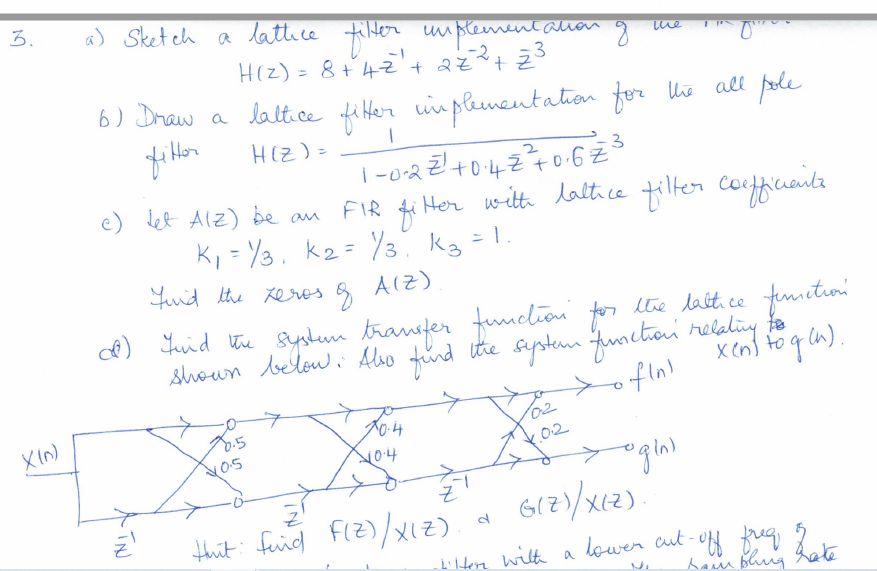 3. a) Sketch a lattice filter implementation of the FIR
H(Z) = 8 + 4Z⁻¹ + 2Z⁻² + Z⁻³
b) Draw a lattice filter implementation for the all pole
filter H(Z) = 1 / (1 - 0.2 Z⁻¹ + 0.4 Z⁻² + 0.6 Z⁻³)
c) Let A(Z) be an FIR filter with lattice filter coefficients
K₁ = 1/3, K₂ = 1/3, K₃ = 1.
Find the zeros of A(Z)
d) Find the system transfer function for the lattice function
shown below. Also find the system function relating to
x(n) to g(n).
f(n)
0.2
0.4
0.5
X(n)
0.2
0.4
0.5
g(n)
Z⁻¹
Z⁻¹
Z⁻¹
Hint: find F(Z)/X(Z) & G(Z)/X(Z).
with a lower cut-off freq of
Sampling rate